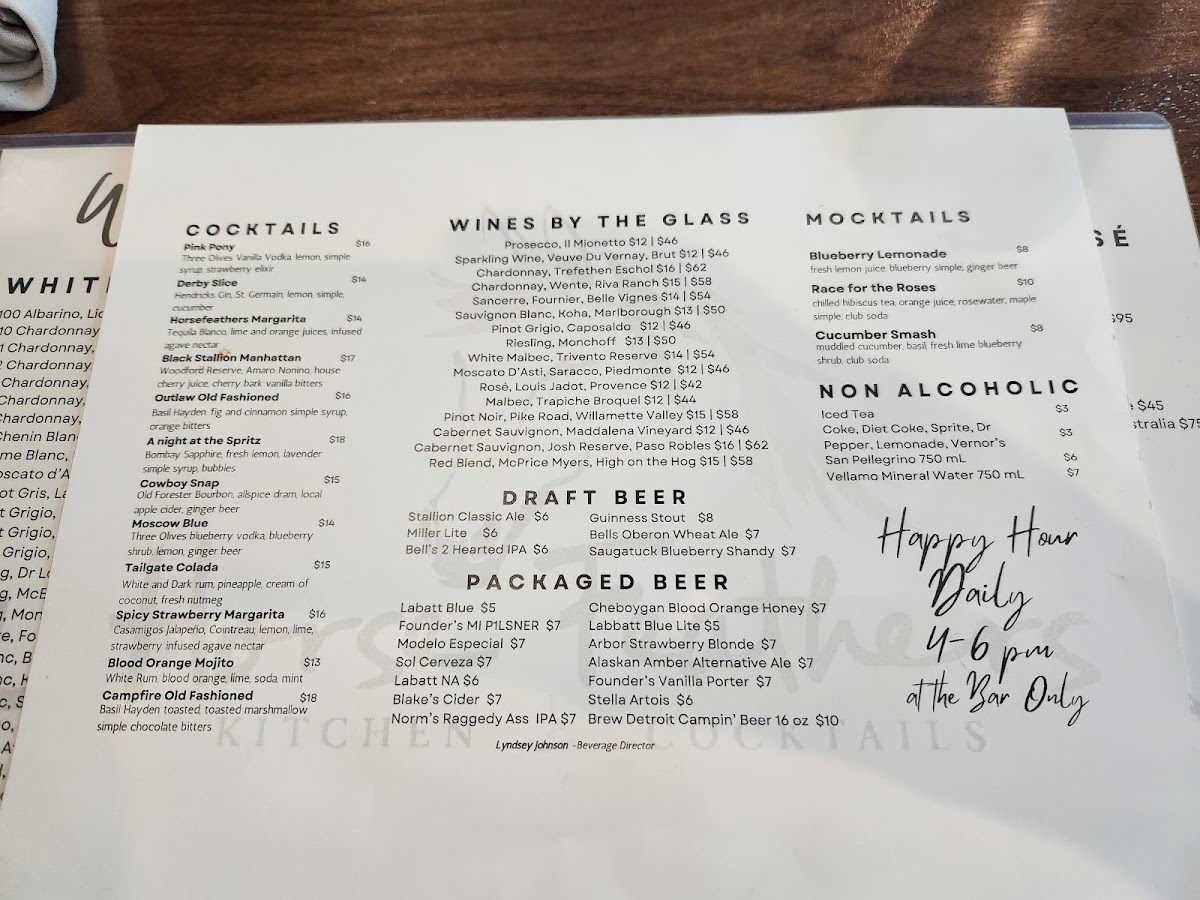 COCKTAILS
Pink Pony $16
Three Olives Vanilla Vodka, lemon, simple
syrup, strawberry elixir
Derby Slice $14
Hendricks Gin, St. Germain, lemon, simple,
cucumber
Horsefeathers Margarita $14
Tequila Blanco, lime and orange juices, infused
agave nectar
Black Stallion Manhattan $17
Woodford Reserve, Amaro Nonino, house
cherry juice, cherry bark vanilla bitters
Outlaw Old Fashioned $16
Basil Hayden, fig and cinnamon simple syrup,
orange bitters
A night at the Spritz $18
Bombay Sapphire, fresh lemon, lavender
simple syrup, bubbles
Cowboy Snap $15
Old Forester Bourbon, allspice dram, local
apple cider, ginger beer
Moscow Blue $14
Three Olives blueberry vodka, blueberry
shrub, lemon, ginger beer
Tailgate Colada $15
White and Dark rum, pineapple, cream of
coconut, fresh nutmeg
Spicy Strawberry Margarita $16
Casamigos Jalapeño, Cointreau, lemon, lime,
strawberry infused agave nectar
Blood Orange Mojito $13
White Rum, blood orange, lime, soda, mint
Campfire Old Fashioned $18
Basil Hayden toasted, toasted marshmallow
simple chocolate bitters
WINES BY THE GLASS
Prosecco, Il Mionetto $12 | $46
Sparkling Wine, Veuve Du Vernay, Brut $12 | $46
Chardonnay, Trefethen Eschol $16 | $62
Chardonnay, Wente, Riva Ranch $15 | $58
Sancerre, Fournier, Belle Vignes $14 | $54
Sauvignon Blanc, Koha, Marlborough $13 | $50
Pinot Grigio, Caposaldo $12 | $46
Riesling, Monchoff $13 | $50
White Malbec, Trivento Reserve $14 | $54
Moscato D'Asti, Saracco, Piedmonte $12 | $46
Rosé, Louis Jadot, Provence $12 | $42
Malbec, Trapiche Broquel $12 | $44
Pinot Noir, Pike Road, Willamette Valley $15 | $58
Cabernet Sauvignon, Maddalena Vineyard $12 | $46
Cabernet Sauvignon, Josh Reserve, Paso Robles $16 | $62
Red Blend, McPrice Myers, High on the Hog $15 | $58
DRAFT BEER
Stallion Classic Ale $6
Miller Lite $6
Bell's 2 Hearted IPA $6
Guinness Stout $8
Bells Oberon Wheat Ale $7
Saugatuck Blueberry Shandy $7
PACKAGED BEER
Labatt Blue $5
Founder's MI P1LSNER $7
Modelo Especial $7
Sol Cerveza $7
Labatt NA $6
Blake's Cider $7
Norm's Raggedy Ass IPA $7
Cheboygan Blood Orange Honey $7
Labbatt Blue Lite $5
Arbor Strawberry Blonde $7
Alaskan Amber Alternative Ale $7
Founder's Vanilla Porter $7
Stella Artois $6
Brew Detroit Campin' Beer 16 oz $10
Lyndsey Johnson - Beverage Director
KITCHEN COCKTAILS
MOCKTAILS
Blueberry Lemonade $8
fresh lemon juice, blueberry simple, ginger beer
Race for the Roses $10
chilled hibiscus tea, orange juice, rosewater, maple
simple, club soda
Cucumber Smash $8
muddled cucumber, basil, fresh lime blueberry
shrub, club soda
NON ALCOHOLIC
Iced Tea $3
Coke, Diet Coke, Sprite, Dr
Pepper, Lemonade, Vernor's $3
San Pellegrino 750 mL $6
Vellamo Mineral Water 750 mL $7
Happy Hour
Daily
4-6 pm
at the Bar Only
WHIT
100 Albarino,
10 Chardonnay
1 Chardonnay,
2 Chardonnay,
Chardonnay,
Chardonnay,
Chenin Blan
me Blanc,
oscato d'A
ot Gris,
t Grigio,
t Grigio,
Grigio,
SÉ
$95
$45
stralia $75